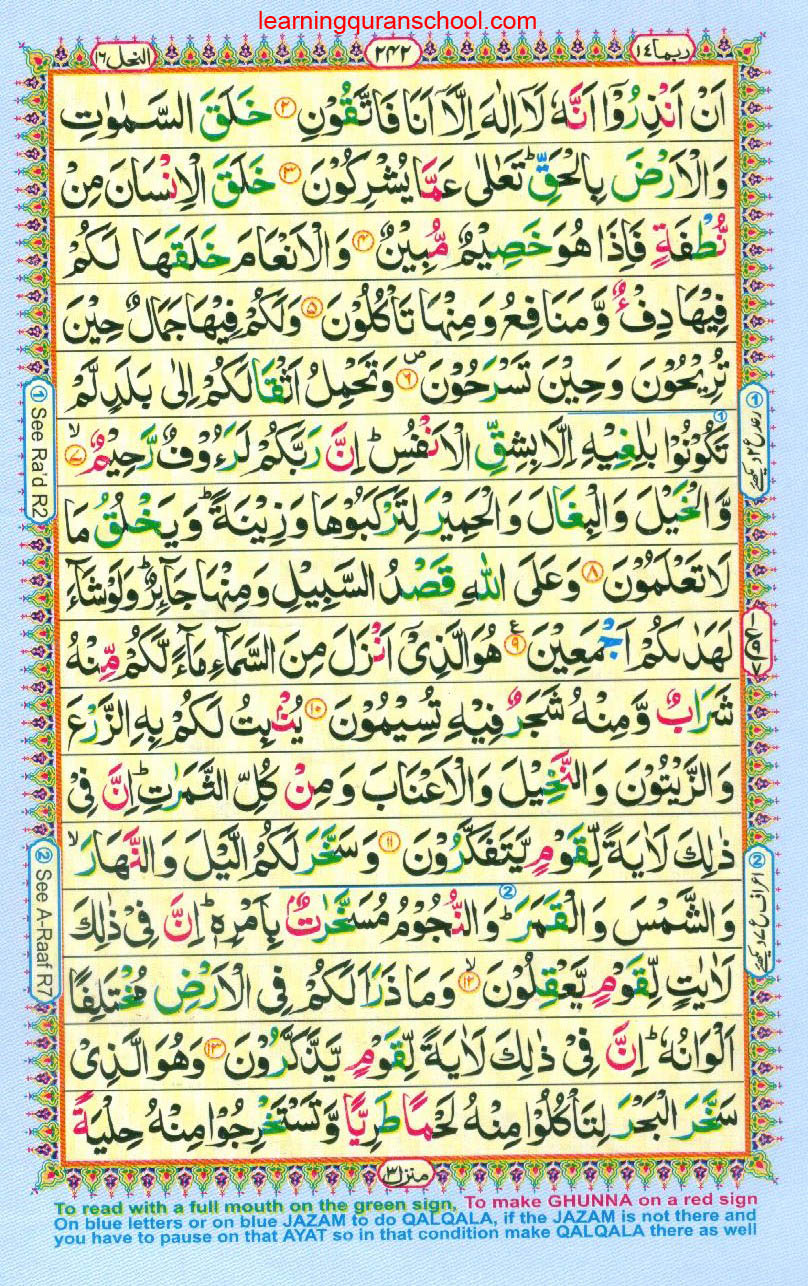 learningquranschool.com
ربما ١٤
٢٤٢
النحل ١٦
اَنْ اَنْذِرُوْۤا اَنَّهٗ لَاۤ اِلٰهَ اِلَّاۤ اَنَا فَاتَّقُوْنِ ٢ خَلَقَ السَّمٰوٰتِ
وَالْاَرْضَ بِالْحَقِّ ؕ تَعٰلٰى عَمَّا يُشْرِكُوْنَ ٣ خَلَقَ الْاِنْسَانَ مِنْ
نُّطْفَةٍ فَاِذَا هُوَ خَصِيْمٌ مُّبِيْنٌ ٤ وَالْاَنْعَامَ خَلَقَهَا لَكُمْ
فِيْهَا دِفْءٌ وَّمَنَافِعُ وَمِنْهَا تَاْكُلُوْنَ ٥ وَلَكُمْ فِيْهَا جَمَالٌ حِيْنَ
تُرِيْحُوْنَ وَحِيْنَ تَسْرَحُوْنَ ٦ وَتَحْمِلُ اَثْقَالَكُمْ اِلٰى بَلَدٍ لَّمْ
تَكُوْنُوْا بٰلِغِيْهِ اِلَّا بِشِقِّ الْاَنْفُسِ ؕ اِنَّ رَبَّكُمْ لَرَءُوْفٌ رَّحِيْمٌ ٧
وَّالْخَيْلَ وَالْبِغَالَ وَالْحَمِيْرَ لِتَرْكَبُوْهَا وَزِيْنَةً ؕ وَيَخْلُقُ مَا
لَا تَعْلَمُوْنَ ٨ وَعَلَى اللّٰهِ قَصْدُ السَّبِيْلِ وَمِنْهَا جَآئِرٌ ؕ وَلَوْ شَآءَ
لَهَدٰىكُمْ اَجْمَعِيْنَ ٩ هُوَ الَّذِيْۤ اَنْزَلَ مِنَ السَّمَآءِ مَآءً لَّكُمْ مِّنْهُ
شَرَابٌ وَّمِنْهُ شَجَرٌ فِيْهِ تُسِيْمُوْنَ ١٠ يُنْۢبِتُ لَكُمْ بِهِ الزَّرْعَ
وَالزَّيْتُوْنَ وَالنَّخِيْلَ وَالْاَعْنَابَ وَمِنْ كُلِّ الثَّمَرٰتِ ؕ اِنَّ فِيْ
ذٰلِكَ لَاٰيَةً لِّقَوْمٍ يَّتَفَكَّرُوْنَ ١١ وَسَخَّرَ لَكُمُ الَّيْلَ وَالنَّهَارَ ۙ
وَالشَّمْسَ وَالْقَمَرَ ؕ وَالنُّجُوْمُ مُسَخَّرٰتٌۢ بِاَمْرِهٖ ؕ اِنَّ فِيْ ذٰلِكَ
لَاٰيٰتٍ لِّقَوْمٍ يَّعْقِلُوْنَ ١٢ وَمَا ذَرَاَ لَكُمْ فِى الْاَرْضِ مُخْتَلِفًا
اَلْوَانُهٗ ؕ اِنَّ فِيْ ذٰلِكَ لَاٰيَةً لِّقَوْمٍ يَّذَّكَّرُوْنَ ١٣ وَهُوَ الَّذِيْ
سَخَّرَ الْبَحْرَ لِتَاْكُلُوْا مِنْهُ لَحْمًا طَرِيًّا وَّتَسْتَخْرِجُوْا مِنْهُ حِلْيَةً
① See Ra'd R2
② See A-Raaf R7
① رعد ع ٢ دیکھئے
② اعراف ع ٧ دیکھئے
منزل ٣
To read with a full mouth on the green sign, To make GHUNNA on a red sign
On blue letters or on blue JAZAM to do QALQALA, if the JAZAM is not there and
you have to pause on that AYAT so in that condition make QALQALA there as well